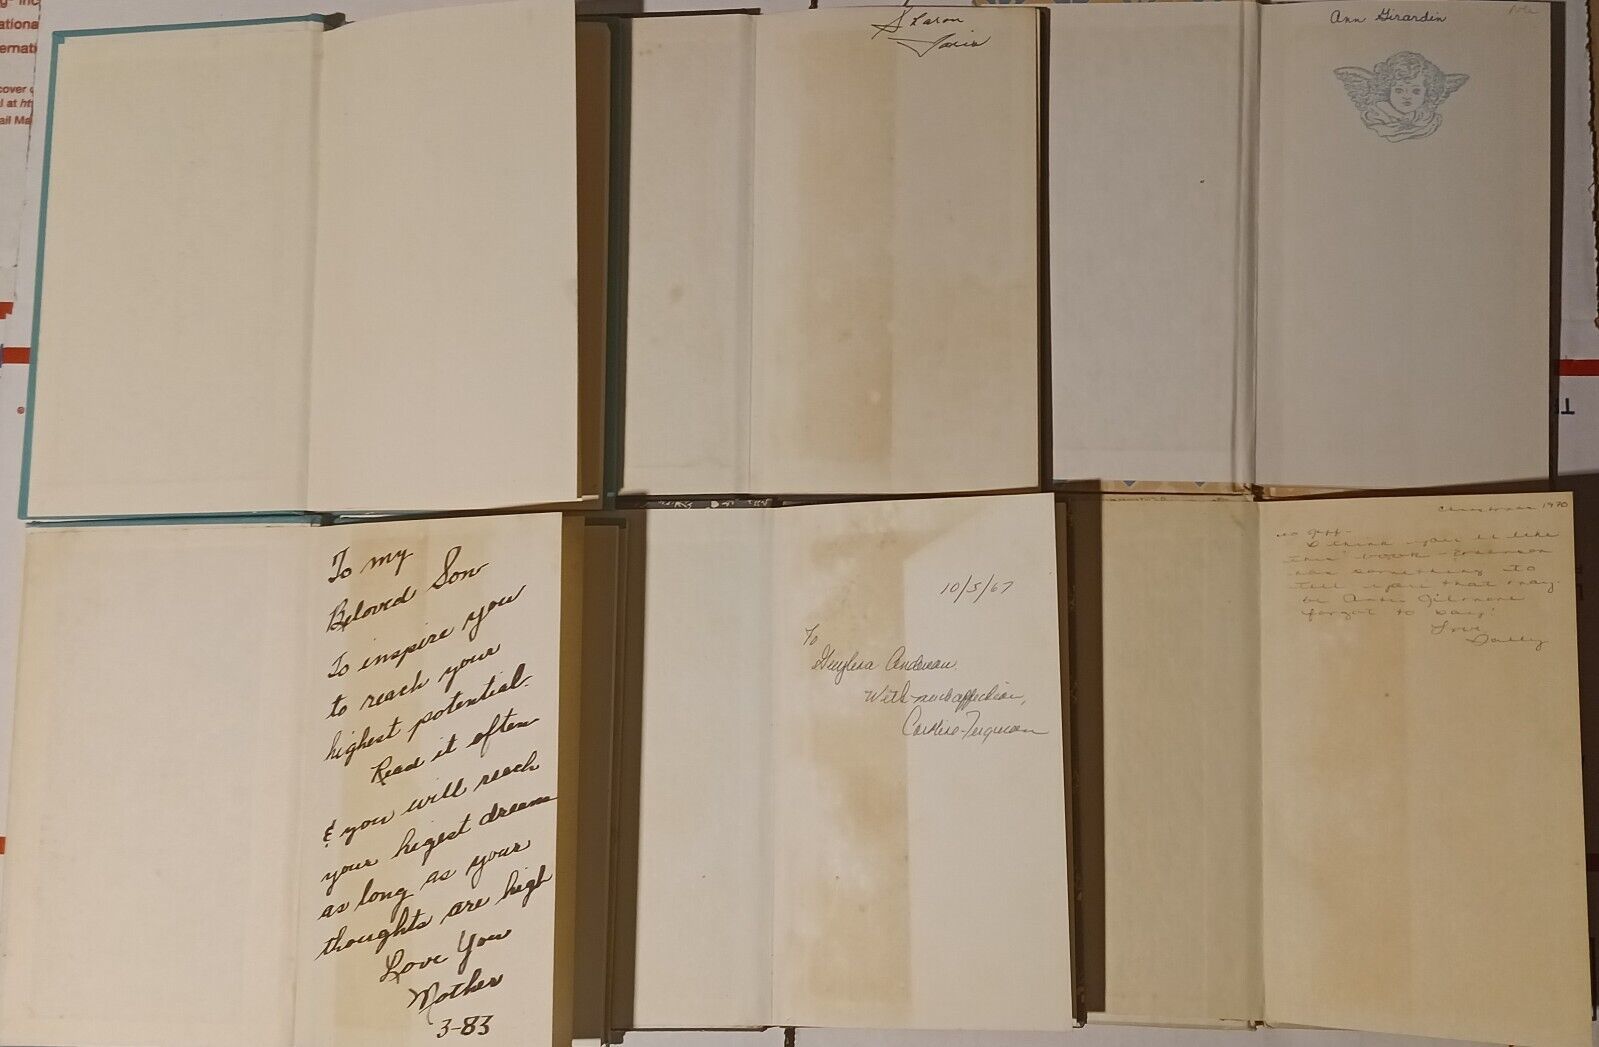 Sharon
Ann Girardin
To my
Beloved Son
To inspire you
to reach your
highest potential.
Read it often
& you will reach
your higest dreams
as long as your
thoughts are high
Love You
Mother
3-83
10/5/67
To
With much affection,
Ferguson
Christmas 1970
to Jeff-
I think you'll like
this book - Emerson
has something to
tell you that may
be
forgot to say!
Love